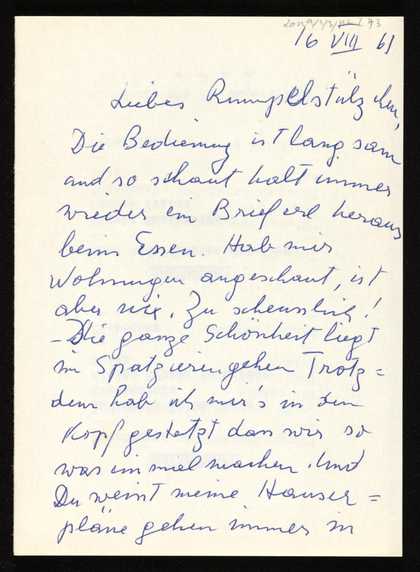 16 VIII 61
Liebes Rumpelstilzchen,
Die Bedienung ist langsam
und so schaut halt immer
wieder ein Brieferl heraus
beim Essen. Hab mir
Wohnungen angeschaut, ist
aber nix. Zu scheusslich!
– Die ganze Schönheit liegt
im Spatzierengehen Trotz=
dem hab ich mir's in den
Kopf gesetzt dass wir so
was einmal machen. Und
Du weisst meine Hauser=
pläne gehen immer in